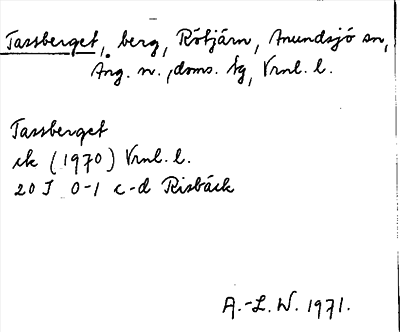 Tassberget, berg, Rötjärn, Anundsjö sn,
Ång. n., doms. tg, Vrnl. l.
Tassberget
ek (1970) Vrnl. l.
20 I 0-1 c-d Risbäck
A.-L. W. 1971.